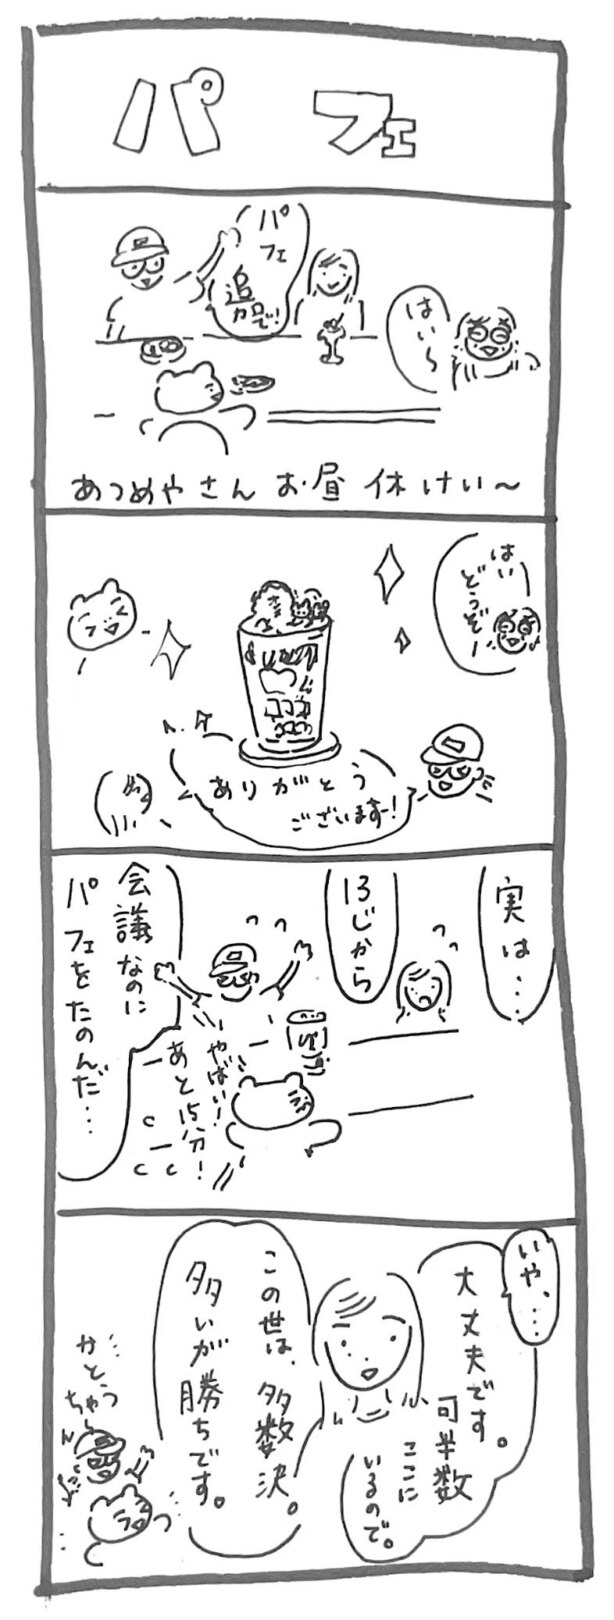 パフェ
パフェ
追加で!
はい〜
あつめやさん お昼休けい〜
はい
どうぞー
ありがとう
ございますー!
実は…
13じから
会議なのに
パフェをたのんだ…
やばい!
あと15分!
いや、…
大丈夫です。
可半数
ここに
いるので。
この世は、多数決。
多いが勝ちです。